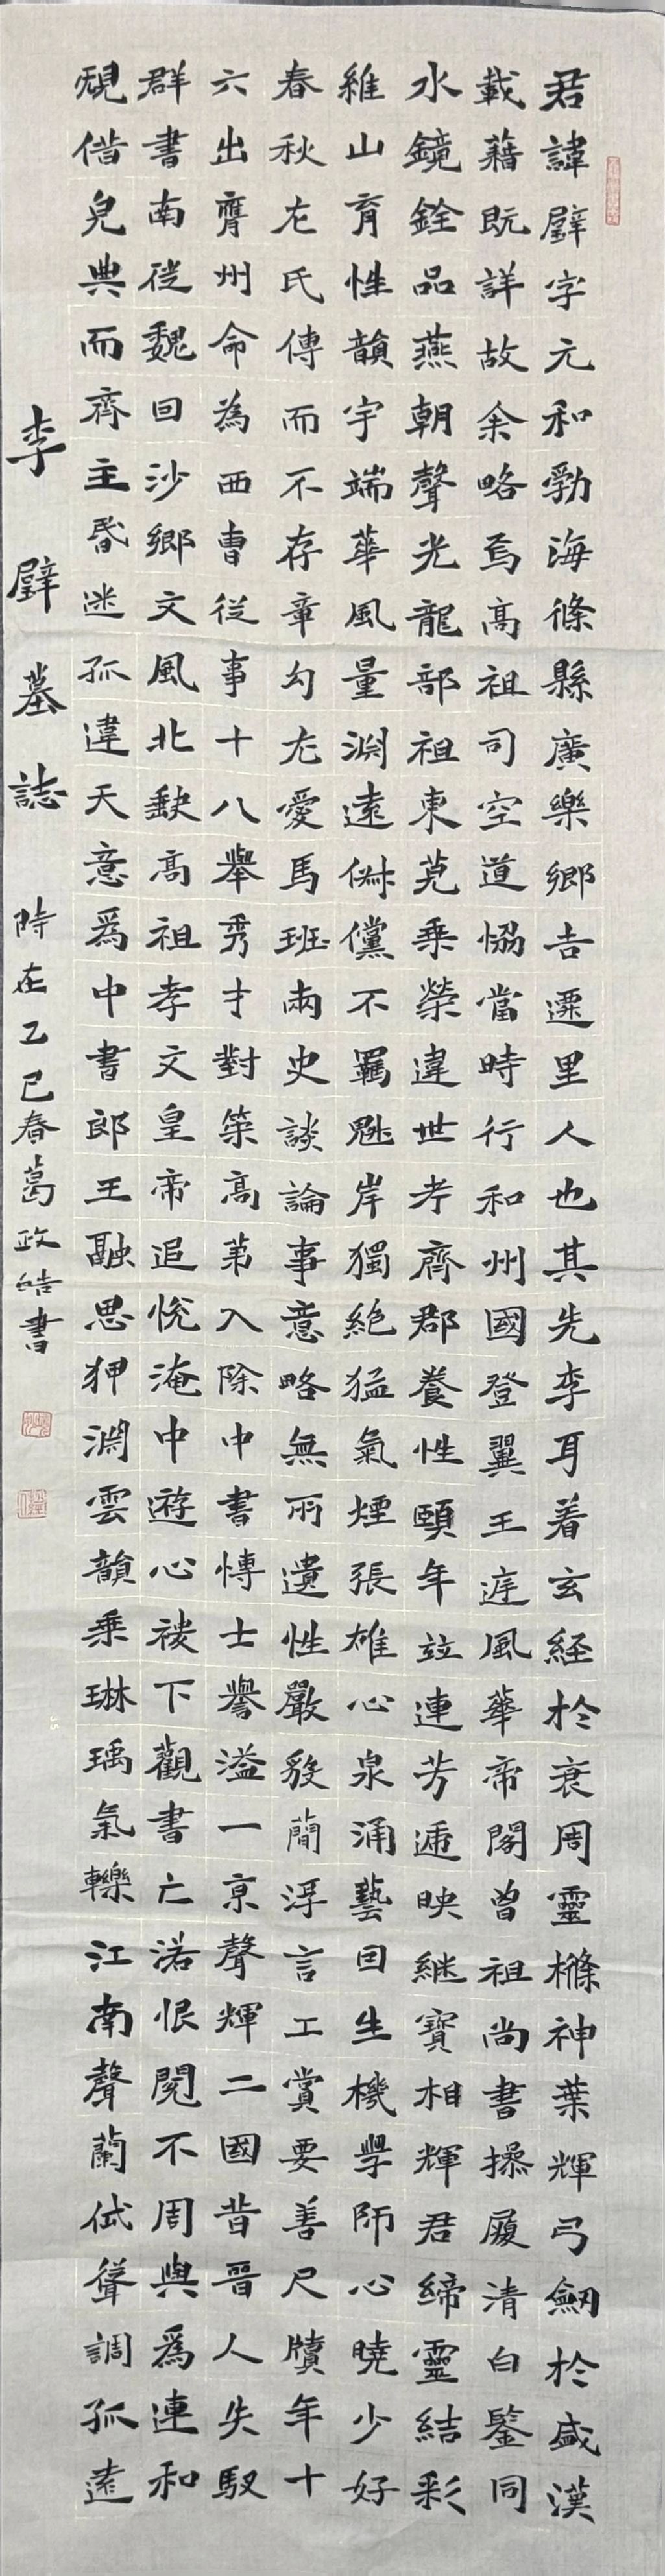 君諱璧字元和勃海條縣廣樂鄉吉遷里人也其先李耳着玄經於衰周靈樤神葉輝弓劒於盛漢
載藉既詳故余略焉高祖司空道協當時行和州國登翼王庭風華帝閣曾祖尚書操履清白鑒同
水鏡銓品燕朝聲光龍部祖東莞乘榮違世考齊郡養性頤年並連芳遞映繼寶相輝君締靈結彩
維山育性韻宇端華風量淵遠倜儻不羈魁岸獨絕猛氣煙張雄心泉涌藝因生機學師心曉少好
春秋左氏傳而不存章勾尤愛馬班兩史談論事意略無所遺性嚴毅簡浮言工賞要善尺牘年十
六出膺州命為西曹從事十八舉秀才對策高第入除中書博士譽溢一京聲輝二國昔晉人失馭
群書南徙魏因沙鄉文風北缺高祖孝文皇帝追悅淹中遊心稷下觀書亡落恨閱不周與爲連和
規借完典而齊主昏迷孤違天意爲中書郎王融思狎淵雲韻乘琳瑀氣轢江南聲蘭岱聳調孤遠
李璧墓誌 時在乙巳春葛政皓書